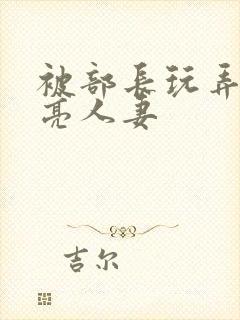 被部長玩弄
亮人妻
吉尔